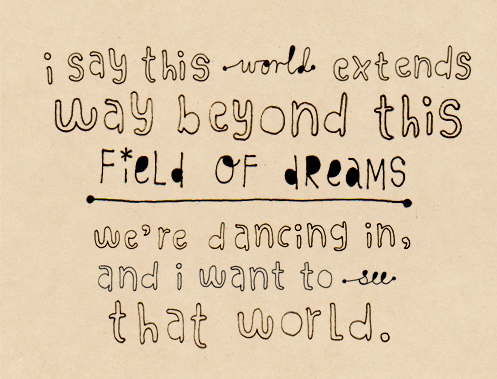 i say this world extends
way beyond this
Field OF dReaMS
we're dancing in,
and i want to see
that world.